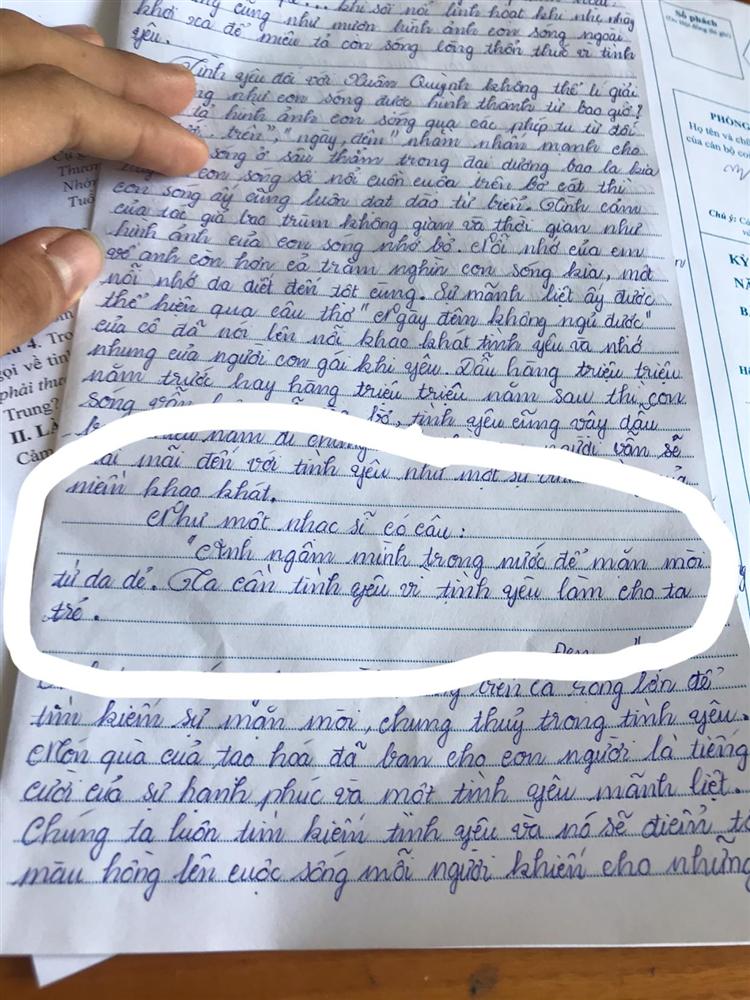 cũng như mượn hình ảnh con sóng ngoài
khơi xa để miêu tả con sóng lòng thổn thức vì tình
yêu.
Tình yêu đối với Xuân Quỳnh không thể lí giải
như con sóng được hình thành từ bao giờ?
tả hình ảnh con sóng qua các phép tu từ đối
trên", "ngày, đêm" nhằm nhấn mạnh cho
sóng ở sâu thẳm trong đại dương bao la kia
con sóng sôi nổi cuồn cuộn trên bờ cát thì
con sóng ấy cũng luôn dạt dào từ biển. Tình cảm
của tác giả bao trùm không gian và thời gian như
hình ảnh của con sóng nhớ bờ. Nỗi nhớ của em
về anh còn hơn cả trăm nghìn con sóng kia, một
nỗi nhớ da diết đến tột cùng. Sự mãnh liệt ấy được
thể hiện qua câu thơ "Ngày đêm không ngủ được"
của cô đã nói lên nỗi khao khát tình yêu và nhớ
nhung của người con gái khi yêu. Dẫu hàng triệu triệu
năm trước hay hàng triệu triệu năm sau thì con
sóng vẫn bờ, tình yêu cũng vậy dậu
năm đi chăng vẫn sẽ
mãi đến với tình yêu như một sự
niềm khao khát.
Như một nhạc sĩ có câu:
"Anh ngâm mình trong nước để mặn mòi
từ da dẻ. Ta cần tình yêu vì tình yêu làm cho ta
trẻ.
Đen
trên cả rộng lớn để
tìm kiếm sự mặn mòi, chung thuỷ trong tình yêu.
Món quà của tạo hoá đã ban cho con người là tiếng
cười của sự hạnh phúc và một tình yêu mãnh liệt.
Chúng ta luôn tìm kiếm tình yêu và nó sẽ điểm tô
màu hồng lên cuộc sống mỗi người khiến cho những
Số phách
PHÒNG
Họ tên và chữ
của cán bộ co
Chú ý:
KỲ
Thươn
Nhớn
Tuổ
4. Tro
gọi về tình
phải thươ
Trung?
II. LÀ
Cảm